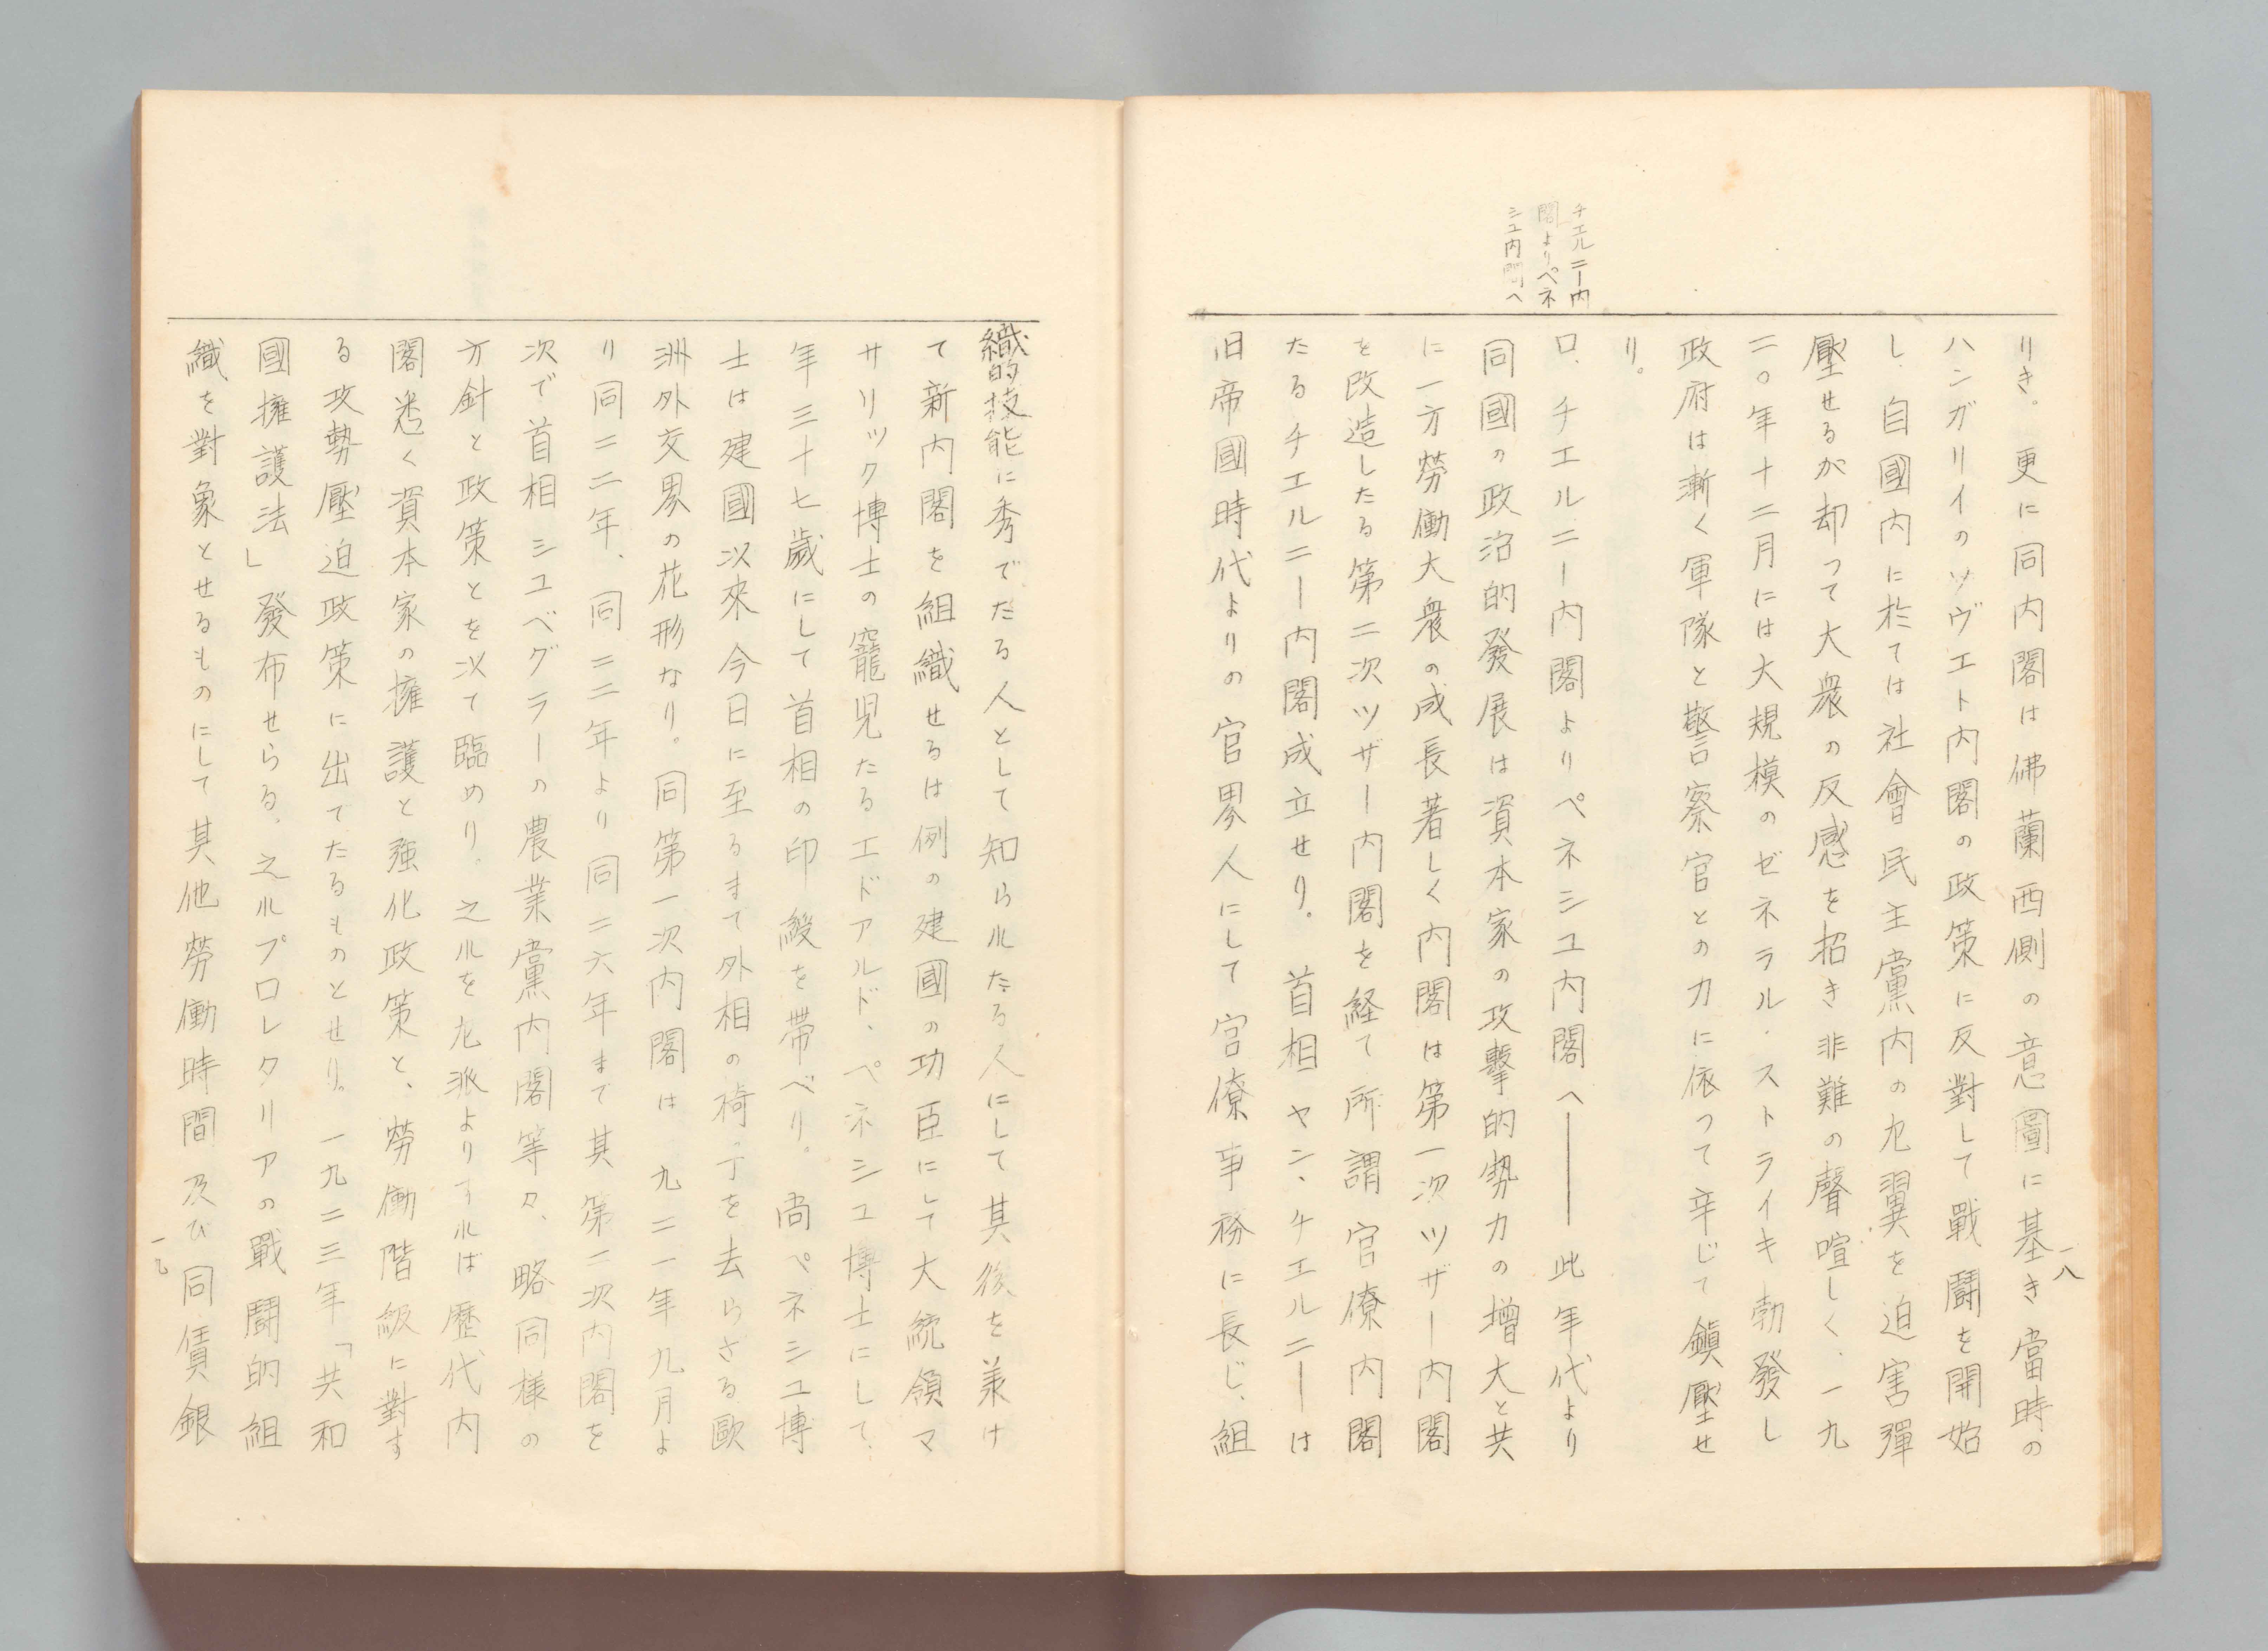 一八
チエルニー内
閣よりペネ
シユ内閣へ
りき。更に同内閣は佛蘭西側の意圖に基き當時の
ハンガリイのソヴエト内閣の政策に反對して戰鬪を開始
し、自國内に於ては社會民主黨内の左翼を迫害彈
壓せるが却つて大衆の反感を招き非難の聲喧しく、一九
二〇年十二月には大規模のゼネラル・ストライキ勃發し
政府は漸く軍隊と警察官との力に依つて辛じて鎭壓せ
り。
ロ、チエルニー内閣よりペネシユ内閣へ――此年代より
同國の政治的發展は資本家の攻擊的勢力の增大と共
に一方勞働大衆の成長著しく内閣は第一次ツザー内閣
を改造したる第二次ツザー内閣を経て所謂官僚内閣
たるチエルニー内閣成立せり。首相ヤン、チエルニーは
旧帝國時代よりの官界人にして官僚事務に長じ、組
織的技能に秀でたる人として知られたる人にして其後を兼け
て新内閣を組織せるは例の建國の功臣にして大統領マ
サリツク博士の寵児たるエドアルド、ペネシユ博士にして、
年三十七歳にして首相の印綬を帯べり。尚ペネシユ博
士は建國以來今日に至るまで外相の椅子を去らざる歐
洲外交界の花形なり。同第一次内閣は一九二一年九月よ
り同二二年、同二二年より同二六年まで其第二次内閣を
次で首相シユベグラーの農業黨内閣等々、略同様の
方針と政策とを以て臨めり。之れを左派よりすれば歴代内
閣悉く資本家の擁護と強化政策と、勞働階級に對す
る攻勢壓迫政策に出てたるものとせり。一九二三年「共和
國擁護法」發布せらる、之れプロレタリアの戰鬪的組
織を對象とせるものにして其他勞働時間及び同賃銀
一九